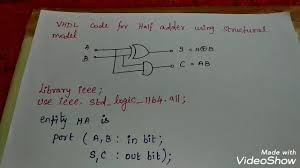 VHDL Code for Half adder using Structural
model
A
B
S = A⊕B
C = AB
Library ieee;
use ieee. std_logic_1164.all;
entity HA is
port (A,B : in bit;
S,C : out bit);
Made with
VideoShow